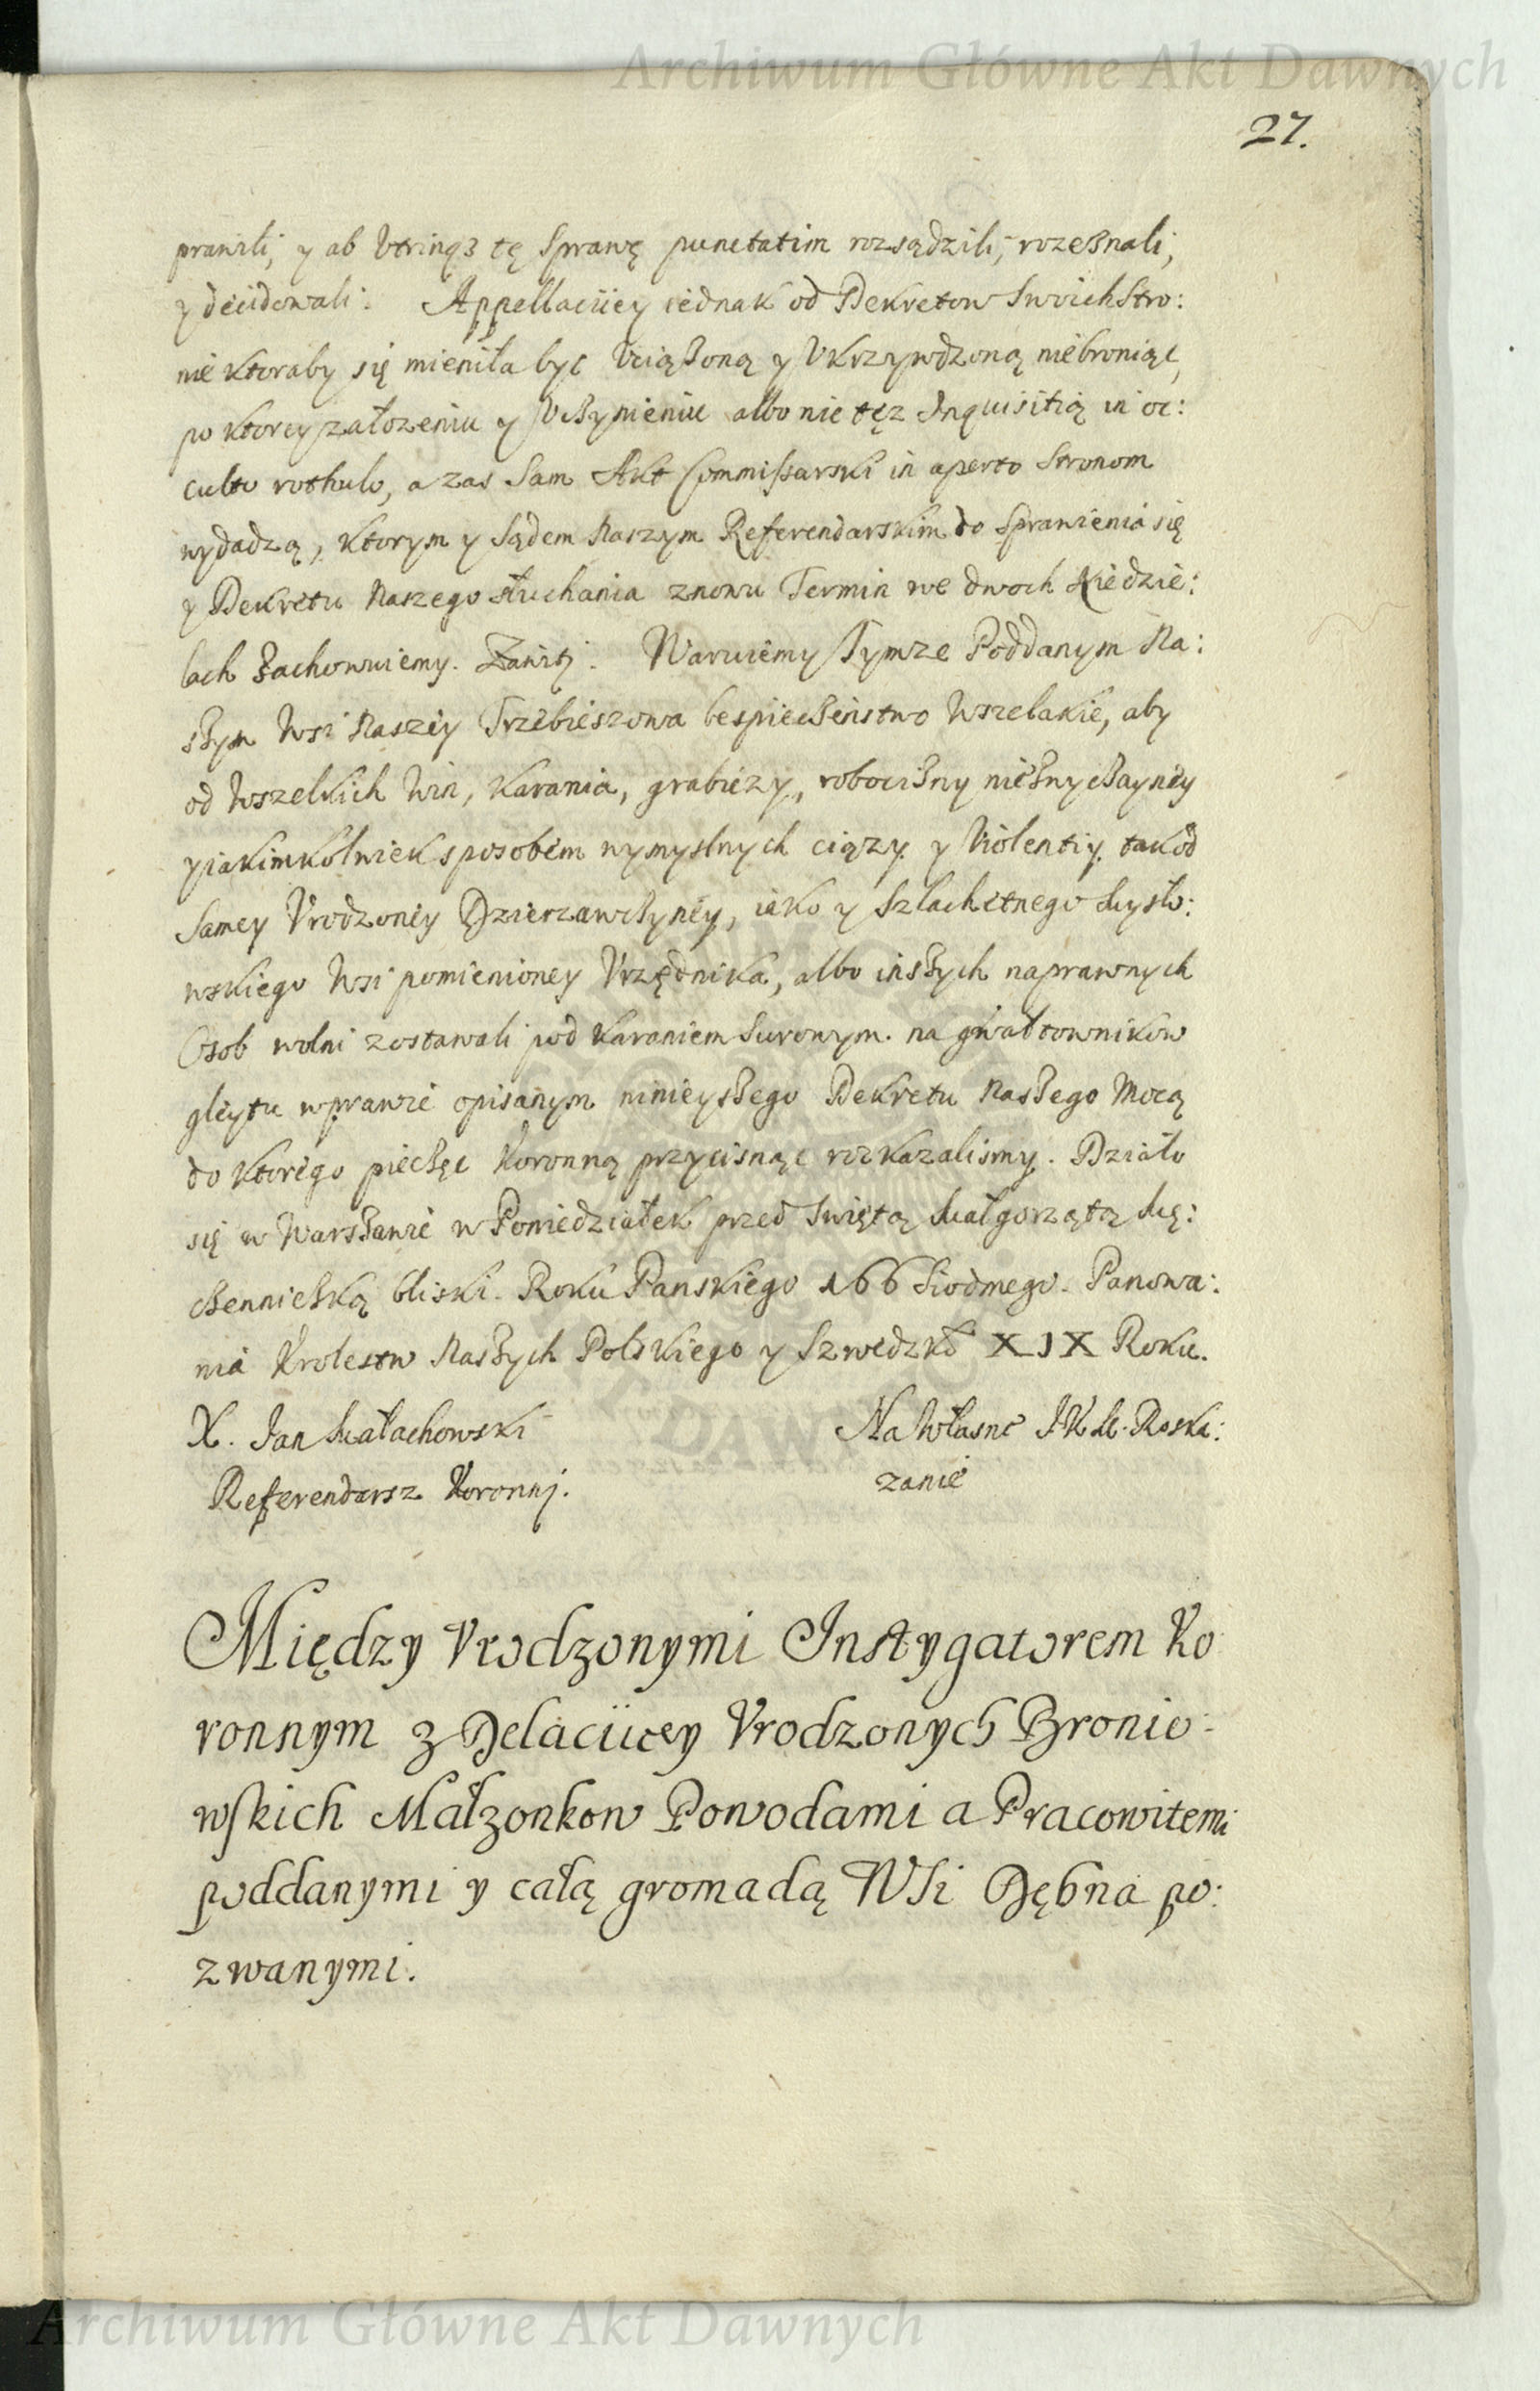 Archiwum Główne Akt Dawnych
27.
prawili, y ab Vtrinq3 tę Sprawę punctatim rozsądzili, rozeznali,
y decidowali. Appellaciiey iednak od Dekretow Swoich Stro:
nie ktoraby się mieniła byc Vciążoną y Vkrzywdzoną niebroniąc,
po ktorey założeniu y Vczynieniu albo nie tęz Inquisitią in oc:
culto rothulo, a zas Sam Akt Commissarski in aperto Stronom
wydadzą, ktorym y Sądem Naszym Referendarskim do Sprawienia się
y Dekretu Naszego słuchania znowu Termin we dwoch Niedzie:
lach Zachowuiemy. Zawitj. Waruiemy Tymze Poddanym Na:
szym Wsi Naszey Trzebieszowa bespieczenstwo Wszelakie, aby
od Wszelkich Win, Karania, grabiezy, robocizny niezwyczayney
y iakimkolwiek sposobem wymyslnych ciązy y Violentiy tak od
Samey Vrodzoney Dzierzawczyney, iako y Szlachetnego Mysło:
wskiego Wsi pomienioney Vrzędnika, albo inszych naprawnych
Osob wolni zostawali pod Karaniem Surowym na gwałtownikow
gleytu w prawie opisanym ninieyszego Dekretu Naszego Mocą
do ktorego pieczęc Koronną przycisnąc rozkazalismy. Działo
się w Warszawie w Poniedziałek przed Swiętą Małgorzątą Mę:
czenniczką bliski. Roku Panskiego 166 Siodmego. Panowa:
nia Krolestw Naszych Polskiego y Szwedzkº XIX Roku.
X. Jan Małachowski
Referendarsz Koronnj.
Na Własne J K M. Roska:
zanie
Między Vrodzonymi Instygatorem Ko
ronnym z Delaciicey Vrodzonych Bronie:
wskich Małzonkow Powodami a Pracowitemi
poddanymi y całą gromadą Wsi Dębna po:
zwanymi.
Archiwum Główne Akt Dawnych